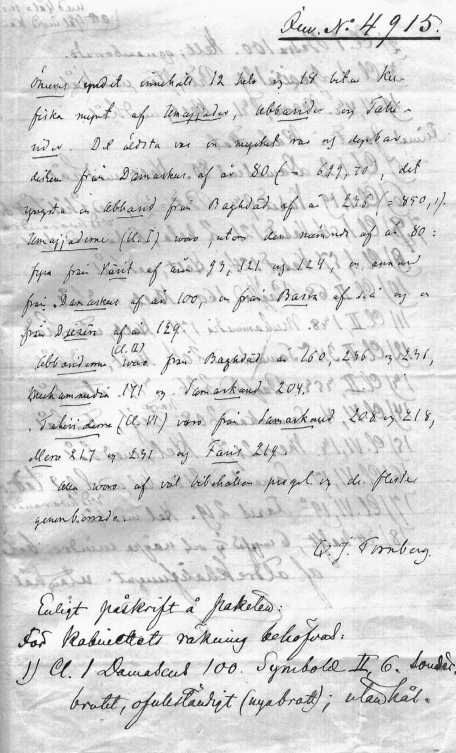 Inv. No 4915.
Öneus fyndet innehöll 12 hela og 18 bitar Ku-
fiska mynt af Umajjader, Abbasider og Tahi-
rider. Det äldsta var en mycket rar og dyrbar
dirhem från Damaskus af år 80 (= 699,70), det
yngsta en Abbasid från Baghdâd af år 236 (= 850,1).
Umajjaderne (Cl. I) voro, utom den nämnde af år 80:
fyra från Vâsit af åren 93, 121 og 124, en annan
från Damaskus af år 100, en från Basra af s.å og en
från Djezira af år 129.
Abbasiderne (Cl. II) voro från Baghdad år 160, 236 og 231,
Muhammedia 171 og Samarkand 204.
Tahiriderne (Cl. VI) voro från Samarkand 208 og 218,
Merv 217 og 231 og Faris 219.
Alla voro af väl bibehållen pregel og de fleste
genomborrade.
C. J. Tornberg.
Enligt påskrift å paketen:
För Kabinettets räkning behöfvas:
1) Cl. I Damascus 100. Symbolæ II, 6. sönder-
brutet, ofullständigt (nyabrott); utan hål.